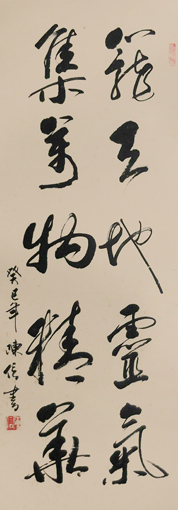 籠天地靈氣
集萬物精華
癸巳年 陳信書